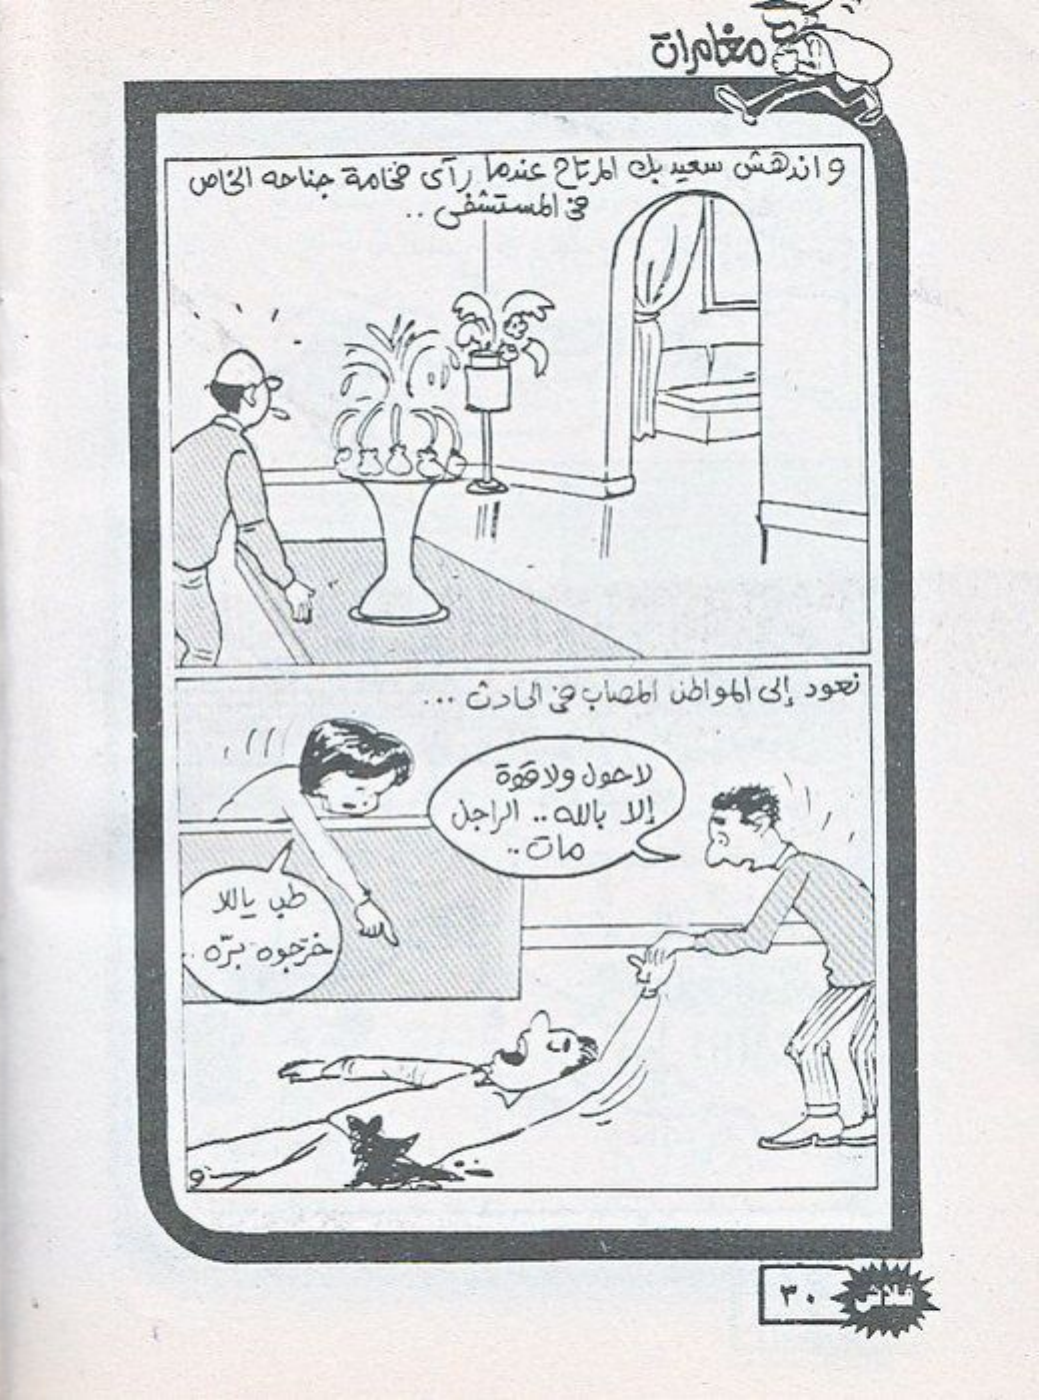 مغامرات
و اندهش سعيد بك المرتاح عندما رآى فخامة جناحه الخاص
فى المستشفى ..
نعود إلى المواطن المصاب فى الحادث ...
لا حول ولا قوة
إلا بالله .. الراجل
مات ..
طب ياللا
خرّجوه برّه .
فلاش
٣٠